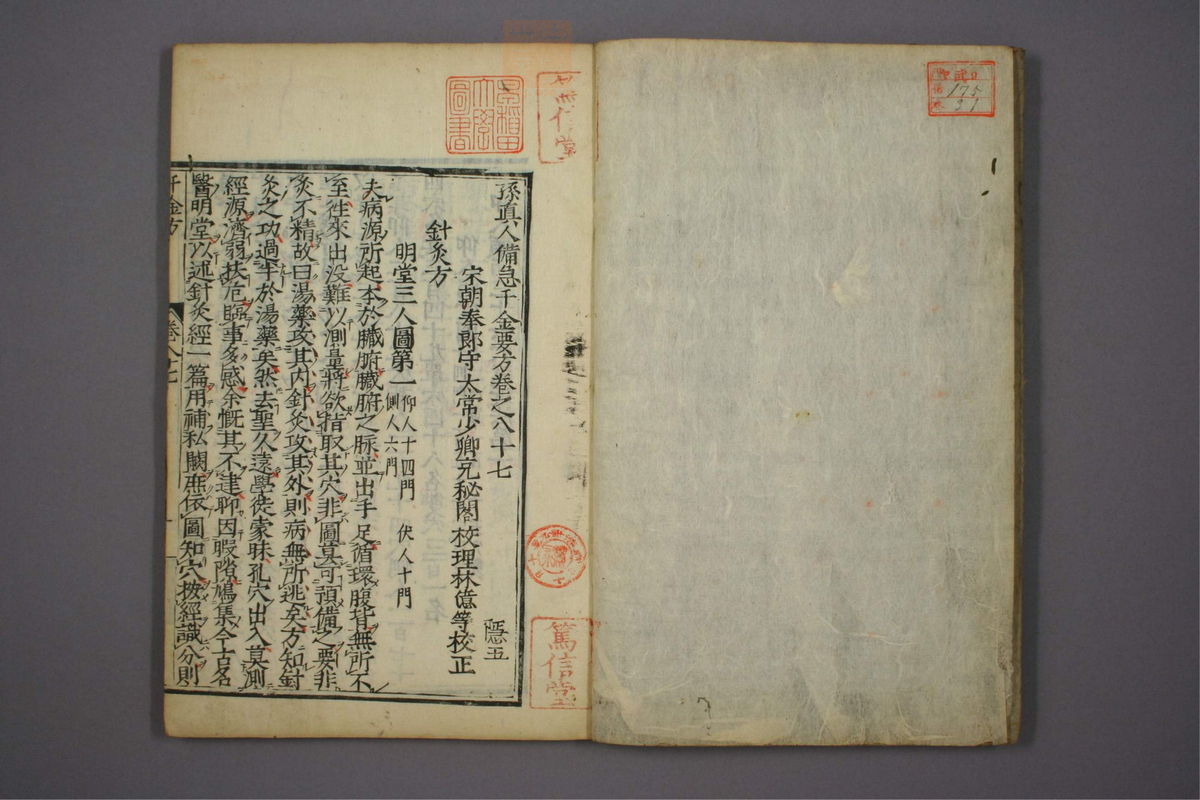 175
31
孫真人備急千金要方卷之八十七
隱五
宋朝奉郎守太常少卿充秘閣校理林億等校正
針灸方
明堂三人圖第一 仰人十四門 伏人十門
側人六門
夫病源所起本於臟腑臟腑之脉並出手足循環腹背無所不
至往來出没難以測量將欲指取其穴非圖莫可預備之要非
灸不精故曰湯藥攻其内針灸攻其外則病無所逃矣方知針
灸之功過半於湯藥矣然去聖久遠學徒蒙昧孔穴出入莫測
經源濟弱扶危臨事多感余慨其不逮聊因暇隙鳩集今古名
醫明堂以述針灸經一篇用補私闕庶依圖知穴按經識分則
千金方
卷八十七
早稻田大學圖書
篤信堂